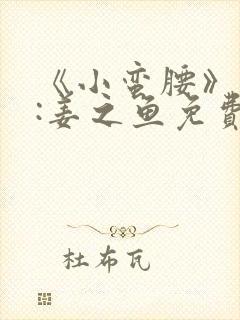 《小蛮腰》
:姜之鱼免費
杜布瓦